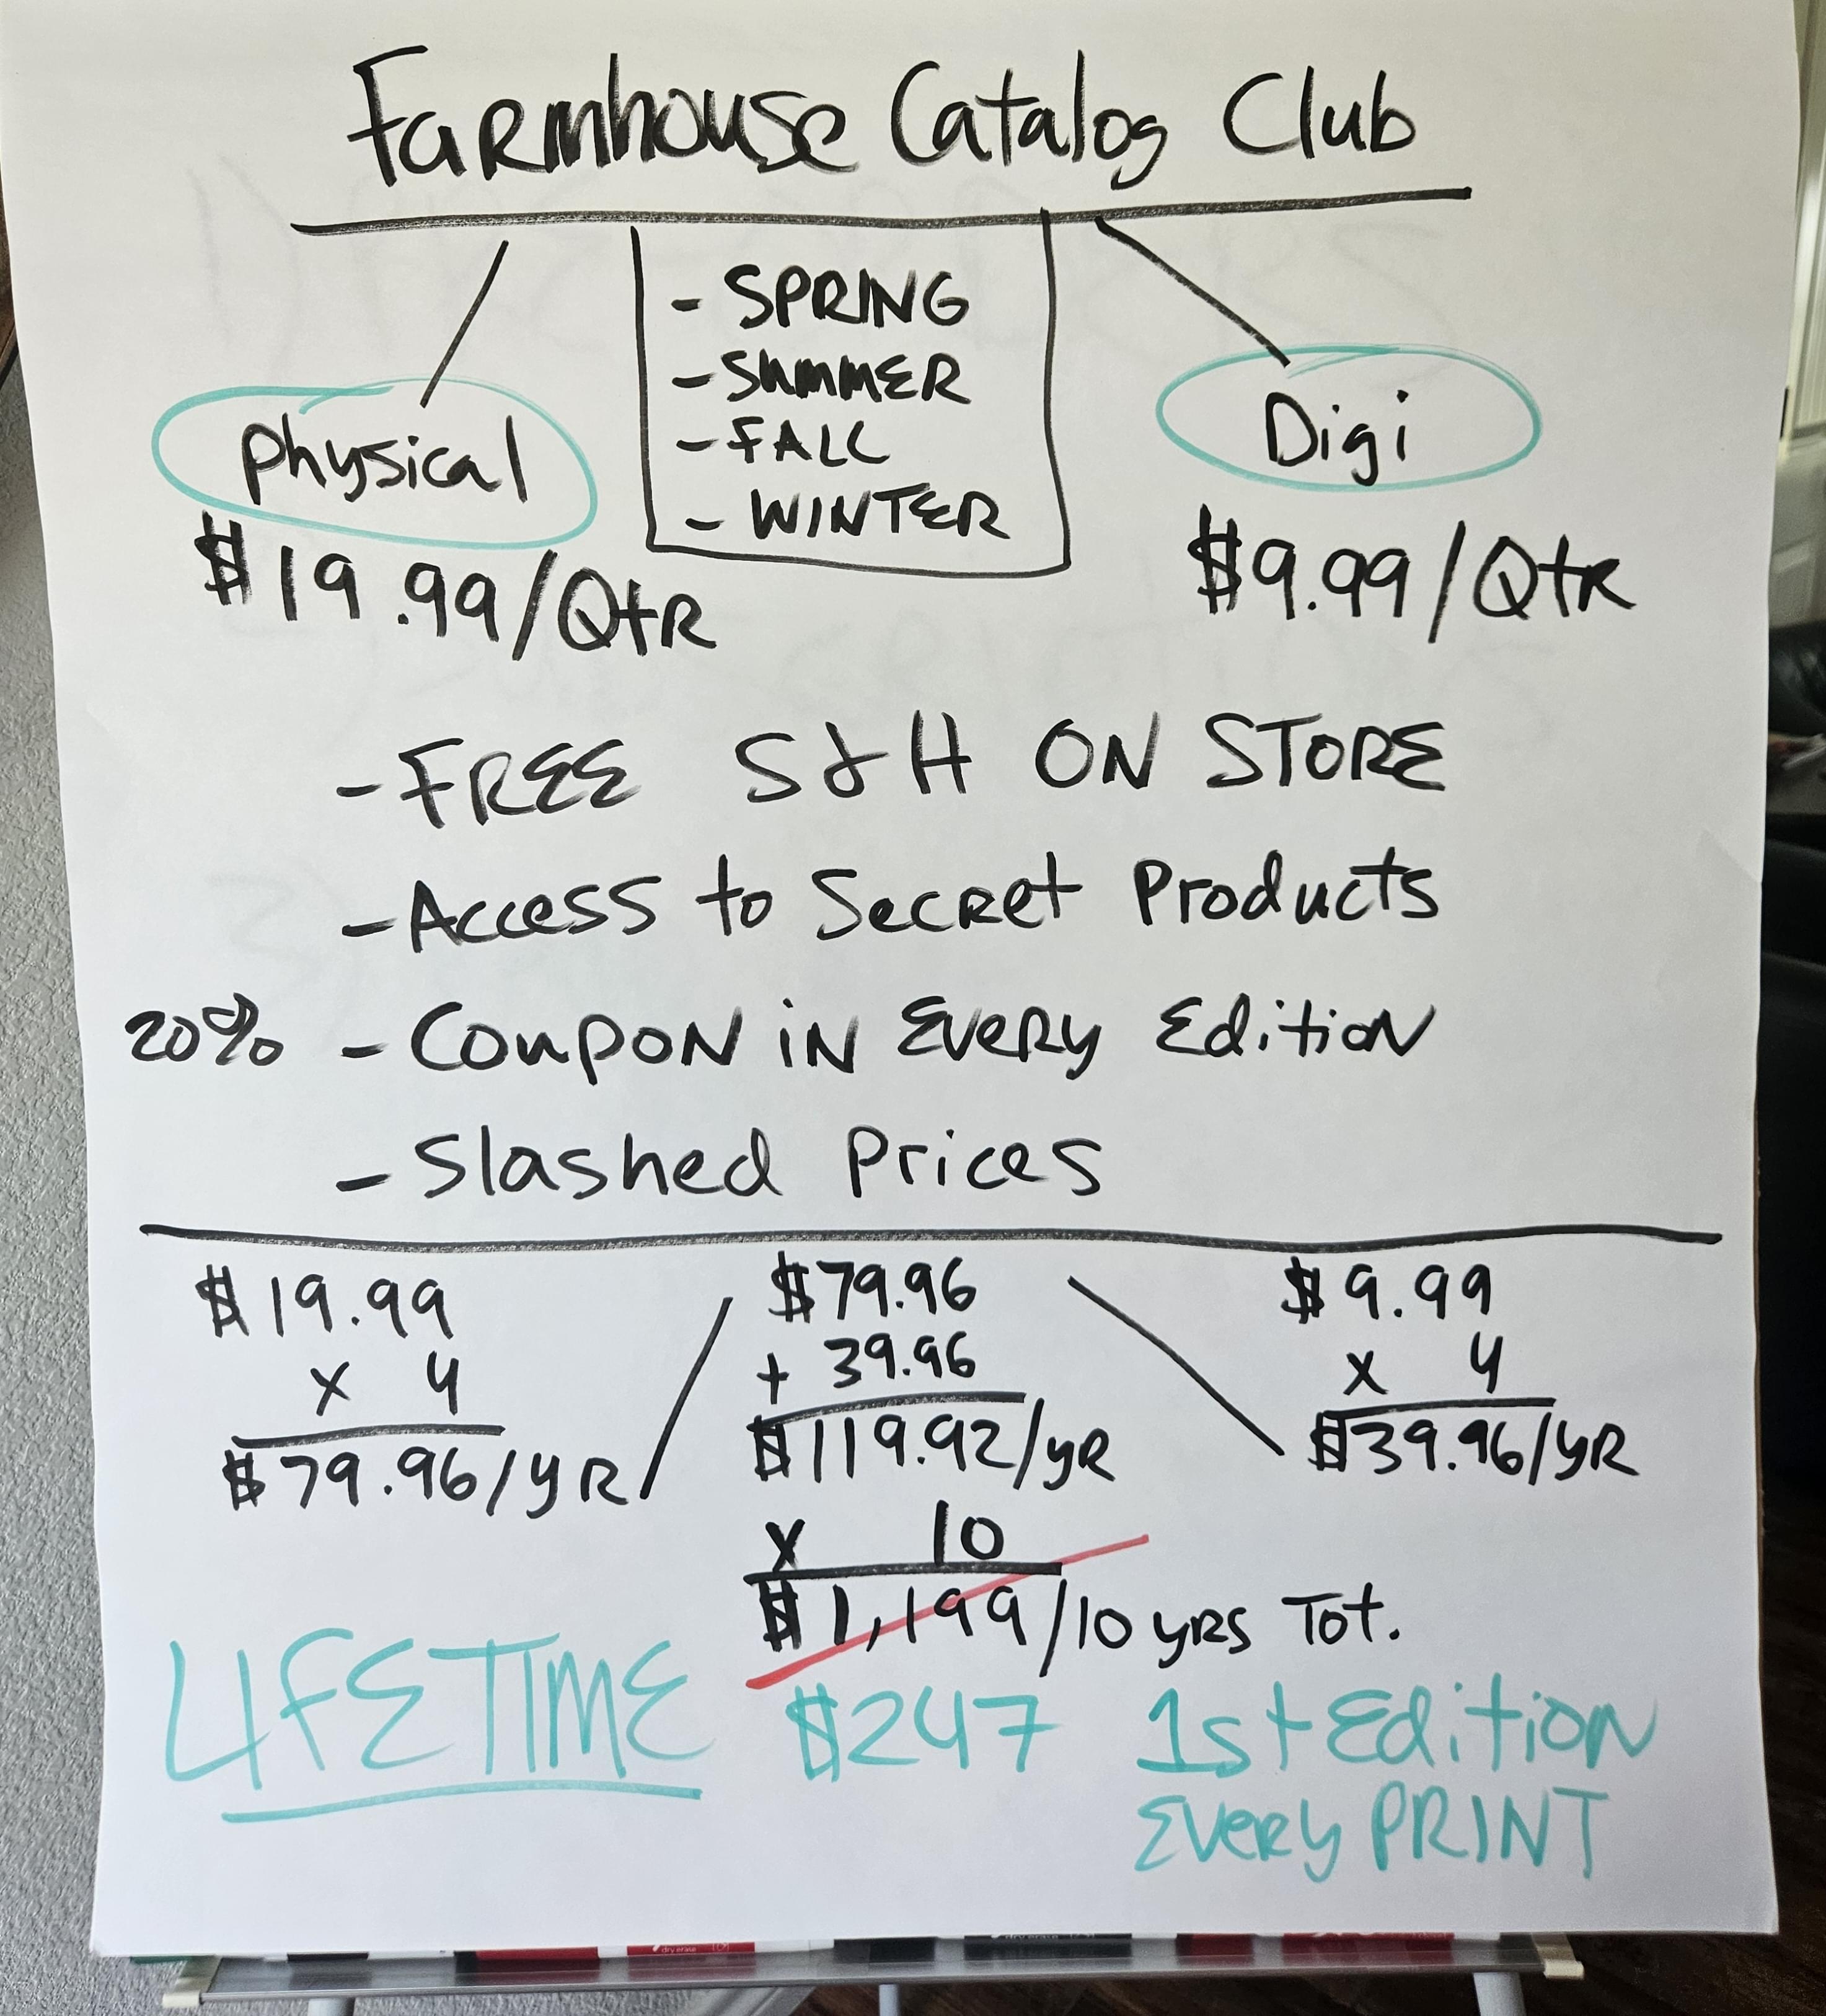 Farmhouse Catalog Club
- SPRING
- SUMMER
- FALL
- WINTER
Physical
$19.99/QtR
Digi
$9.99/QtR
- FREE S&H ON STORE
- Access to Secret Products
20% - Coupon in Every Edition
- Slashed Prices
$19.99
x 4
$79.96/yR
$79.96
+ 39.96
$119.92/yR
x 10
$1,199/10 yRs Tot.
$9.99
x 4
$39.96/yR
LIFETIME $247 1st Edition
Every PRINT
dry erase